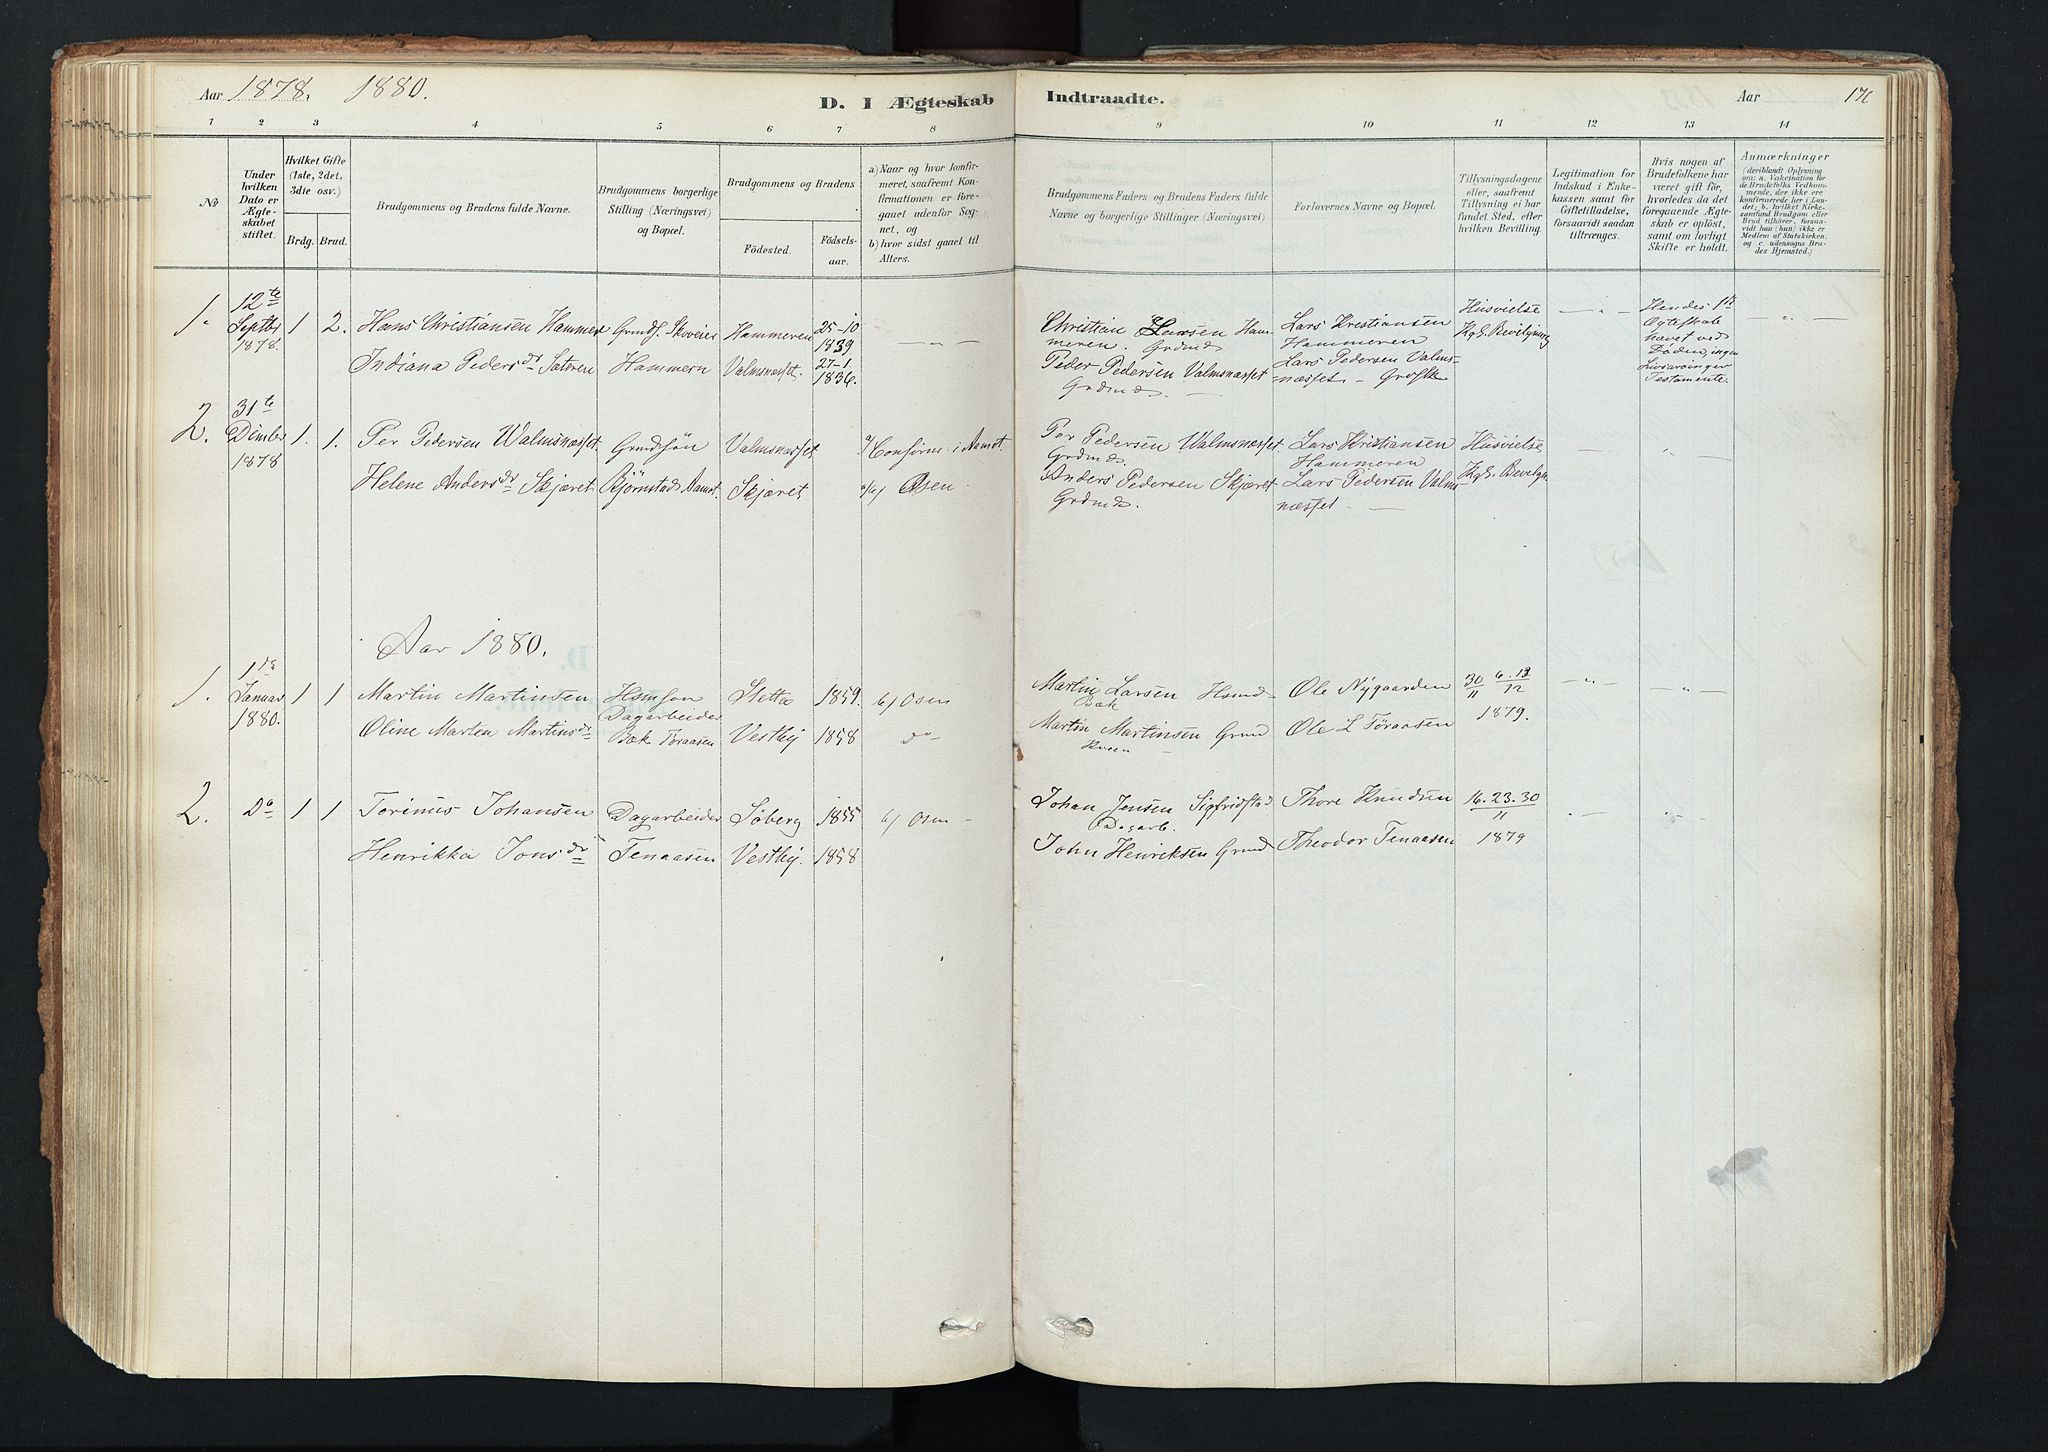 Aar 1878, 1880.
D. I Ægteskab Indtraadte.
Aar
1 2 3 4 5 6 7 8 9 10 11 12 13 14
No
Under hvilken Dato er Ægteskabet stiftet.
Hvilket Gifte (1ste, 2det, 3die osv.)
Brdg. Brud.
Brudgommens og Brudens fulde Navne.
Brudgommens borgerlige Stilling (Næringsvei) og Bopæl.
Brudgommens og Brudens
Födested.
Födsels-aar.
a) Naar og hvor konfirmeret, saafremt Konfirmationen er foregaaet udenfor Sognet, og
b) hvor sidst gaaet til Alters.
Brudgommens Faders og Brudens Faders fulde Navne og borgerlige Stillinger (Næringsvei)
Forlovernes Navne og Bopæl.
Tillysningsdagene eller, saafremt Tillysning ei har fundet Sted, efter hvilken Bevilling.
Legitimation for Indskud i Enkekassen samt for Giftetilladelse, forsaavidt saadan tiltrænges.
Hvis nogen af Brudefolkene har været gift för, hvorledes da det foregaaende Ægteskab er oplöst, samt om lovligt Skifte er holdt.
Anmærkninger (deriblandt Oplysning om: a. Vakcination for de Brudefolks Vedkommende, der ikke ere konfirmerede her i Landet; b. hvilket Kirkesamfund Brudgom eller Brud tilhörer, forsaavidt han (hun) ikke er Medlem af Statskirken, og c. udensogns Brudes Hjemsted.)
1. 12te Septbr 1878. 1 2. Hans Christiansen Hammer Grmdf. Hammeren 25-10 1839
Indiana Pedersdr Sæteren Hammern Valmsnæsset. 27-1 1836.
Christian Larsen Hammeren. Grdmd
Peder Pedersen Valmsnæsset Grdmd.
Lars Kristiansen Hammeren
Lars Pedersen Valmsnæsset
Husvielse Kgl. Bevilgning
Hendes 1ste Ægteskab hævet ved Döden, ingen Livsarvinger Testamente.
2. 31te Dcmber 1878 1. 1. Per Pedersen Walmsnæsset. Grmdsön Valmsnæsset. a/ Confirm: i Aamot.
Helene Andersdr Skjæret Björnstad Aamot. Skjæret b/ Osen.
Per Pedersen Walmsnæsset Grdmd.
Anders Pedersen Skjæret Grdmd.
Lars Kristiansen Hammeren
Lars Pedersen Valmsnæsset.
Husvielse Kgl. Bevilgn.
Aar 1880.
1. 1ste Januar 1880. 1 1 Martin Martinsen Hsmsøn Dagarbeider Sletta 1859. b/ Osen
Oline Marten Martinsdr Bæk Töraasen Vestby 1858 do
Martin Larsen Hsmd Bæk
Martin Martinsen Grmd
Ole Nygaarden
Ole L Töraasen
30/11 6. 13/12 1879.
2. Do 1 1 Torinus Johansen Dagarbeider Söberg 1855 b/ Osen
Henrikka Jonsdr Tenaasen Vestby. 1858
Johan Jensen Sigfridstad Dagarb.
John Henriksen Grmd
Thore Knudsen
Theodor Tenaasen
16. 23. 30/11 1879